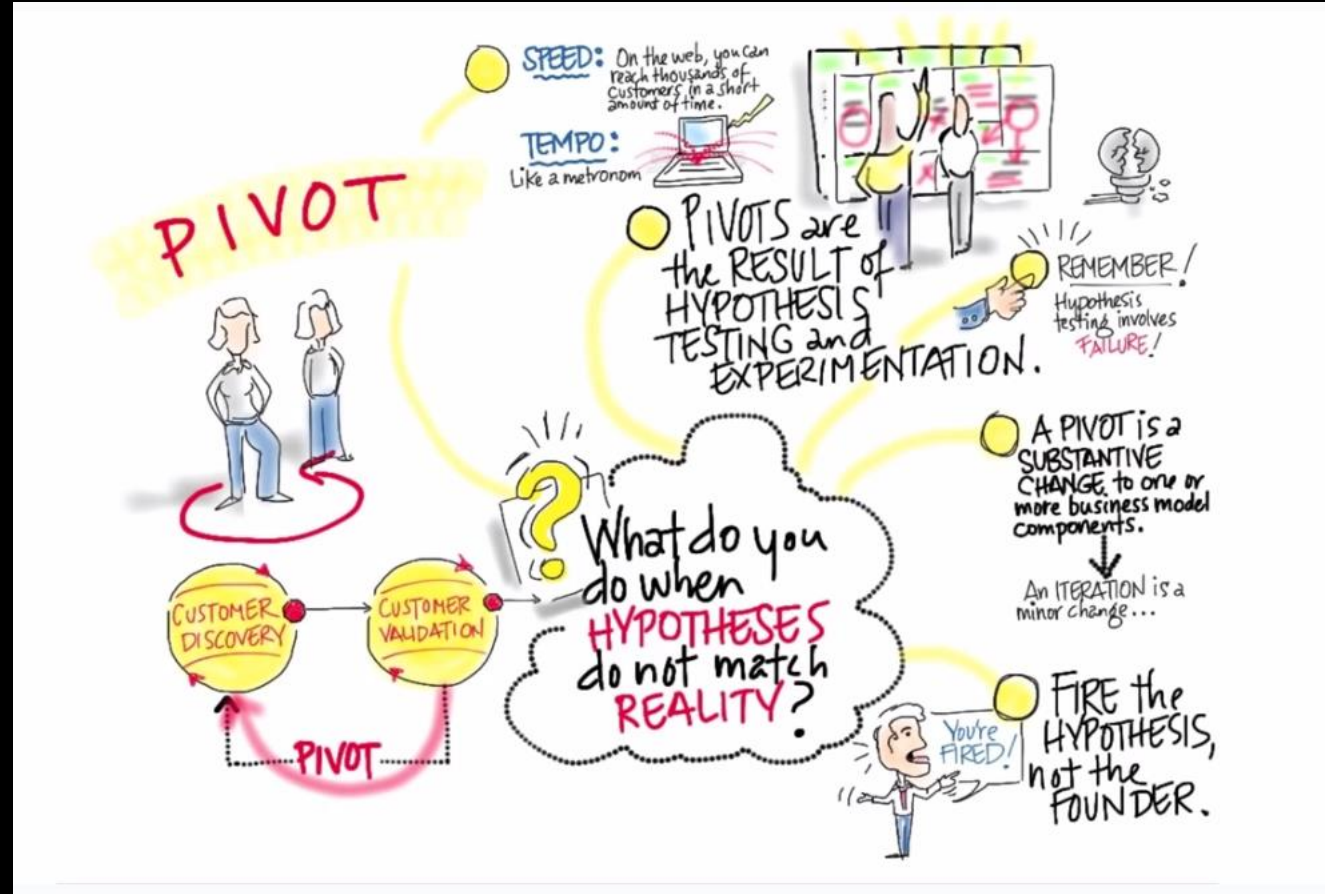 PIVOT
SPEED: On the web, you can
reach thousands of
customers in a short
amount of time.
TEMPO:
Like a metronom
PIVOTS are
the RESULT of
HYPOTHESIS
TESTING and
EXPERIMENTATION.
REMEMBER!
Hypothesis
testing involves
FAILURE!
A PIVOT is a
SUBSTANTIVE
CHANGE to one or
more business model
components.
An ITERATION is a
minor change...
What do you
do when
HYPOTHESES
do not match
REALITY?
CUSTOMER
DISCOVERY
CUSTOMER
VALIDATION
PIVOT
You're
FIRED!
FIRE the
HYPOTHESIS,
not the
FOUNDER.